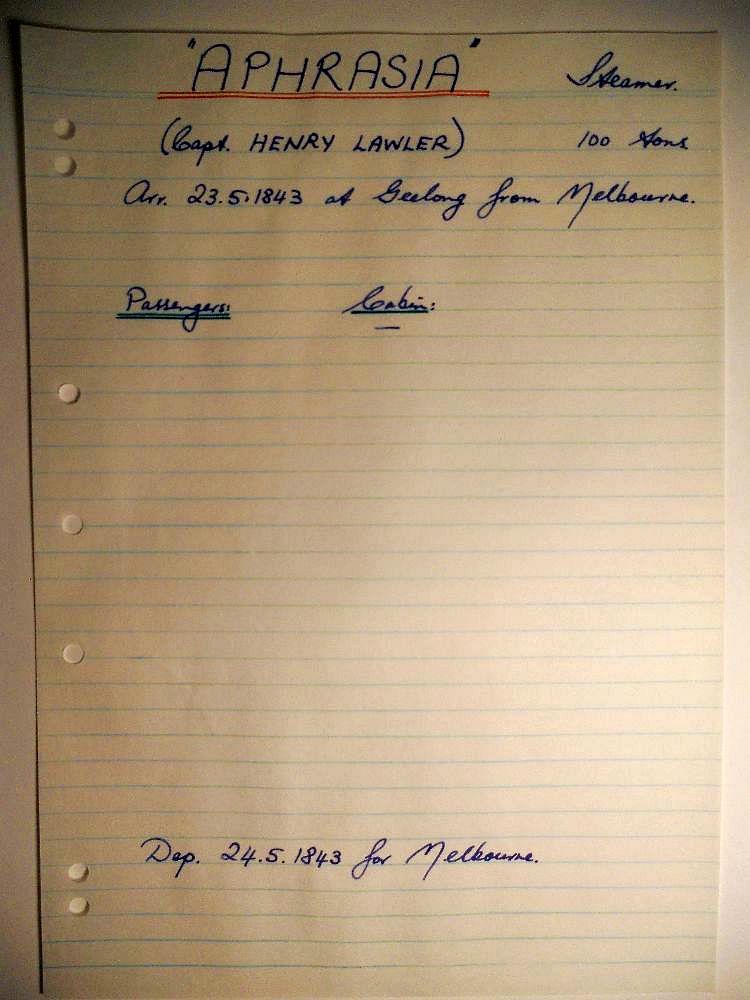 "APHRASIA" Steamer.
(Capt. HENRY LAWLER) 100 tons
Arr. 23.5.1843 at Geelong from Melbourne.
Passengers: Cabin:
—
Dep. 24.5.1843 for Melbourne.